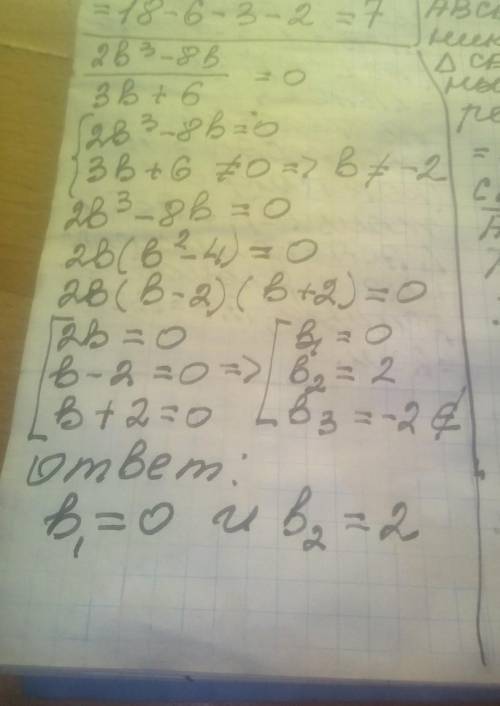 = 18 - 6 - 3 - 2 = 7
2b³ - 8b
3b + 6
= 0
{ 2b³ - 8b = 0
3b + 6 ≠ 0 => b ≠ -2
2b³ - 8b = 0
2b(b² - 4) = 0
2b(b - 2)(b + 2) = 0
[ 2b = 0 [ b₁ = 0
b - 2 = 0 => b₂ = 2
b + 2 = 0 b₃ = -2 ∉
Ответ:
b₁ = 0 и b₂ = 2